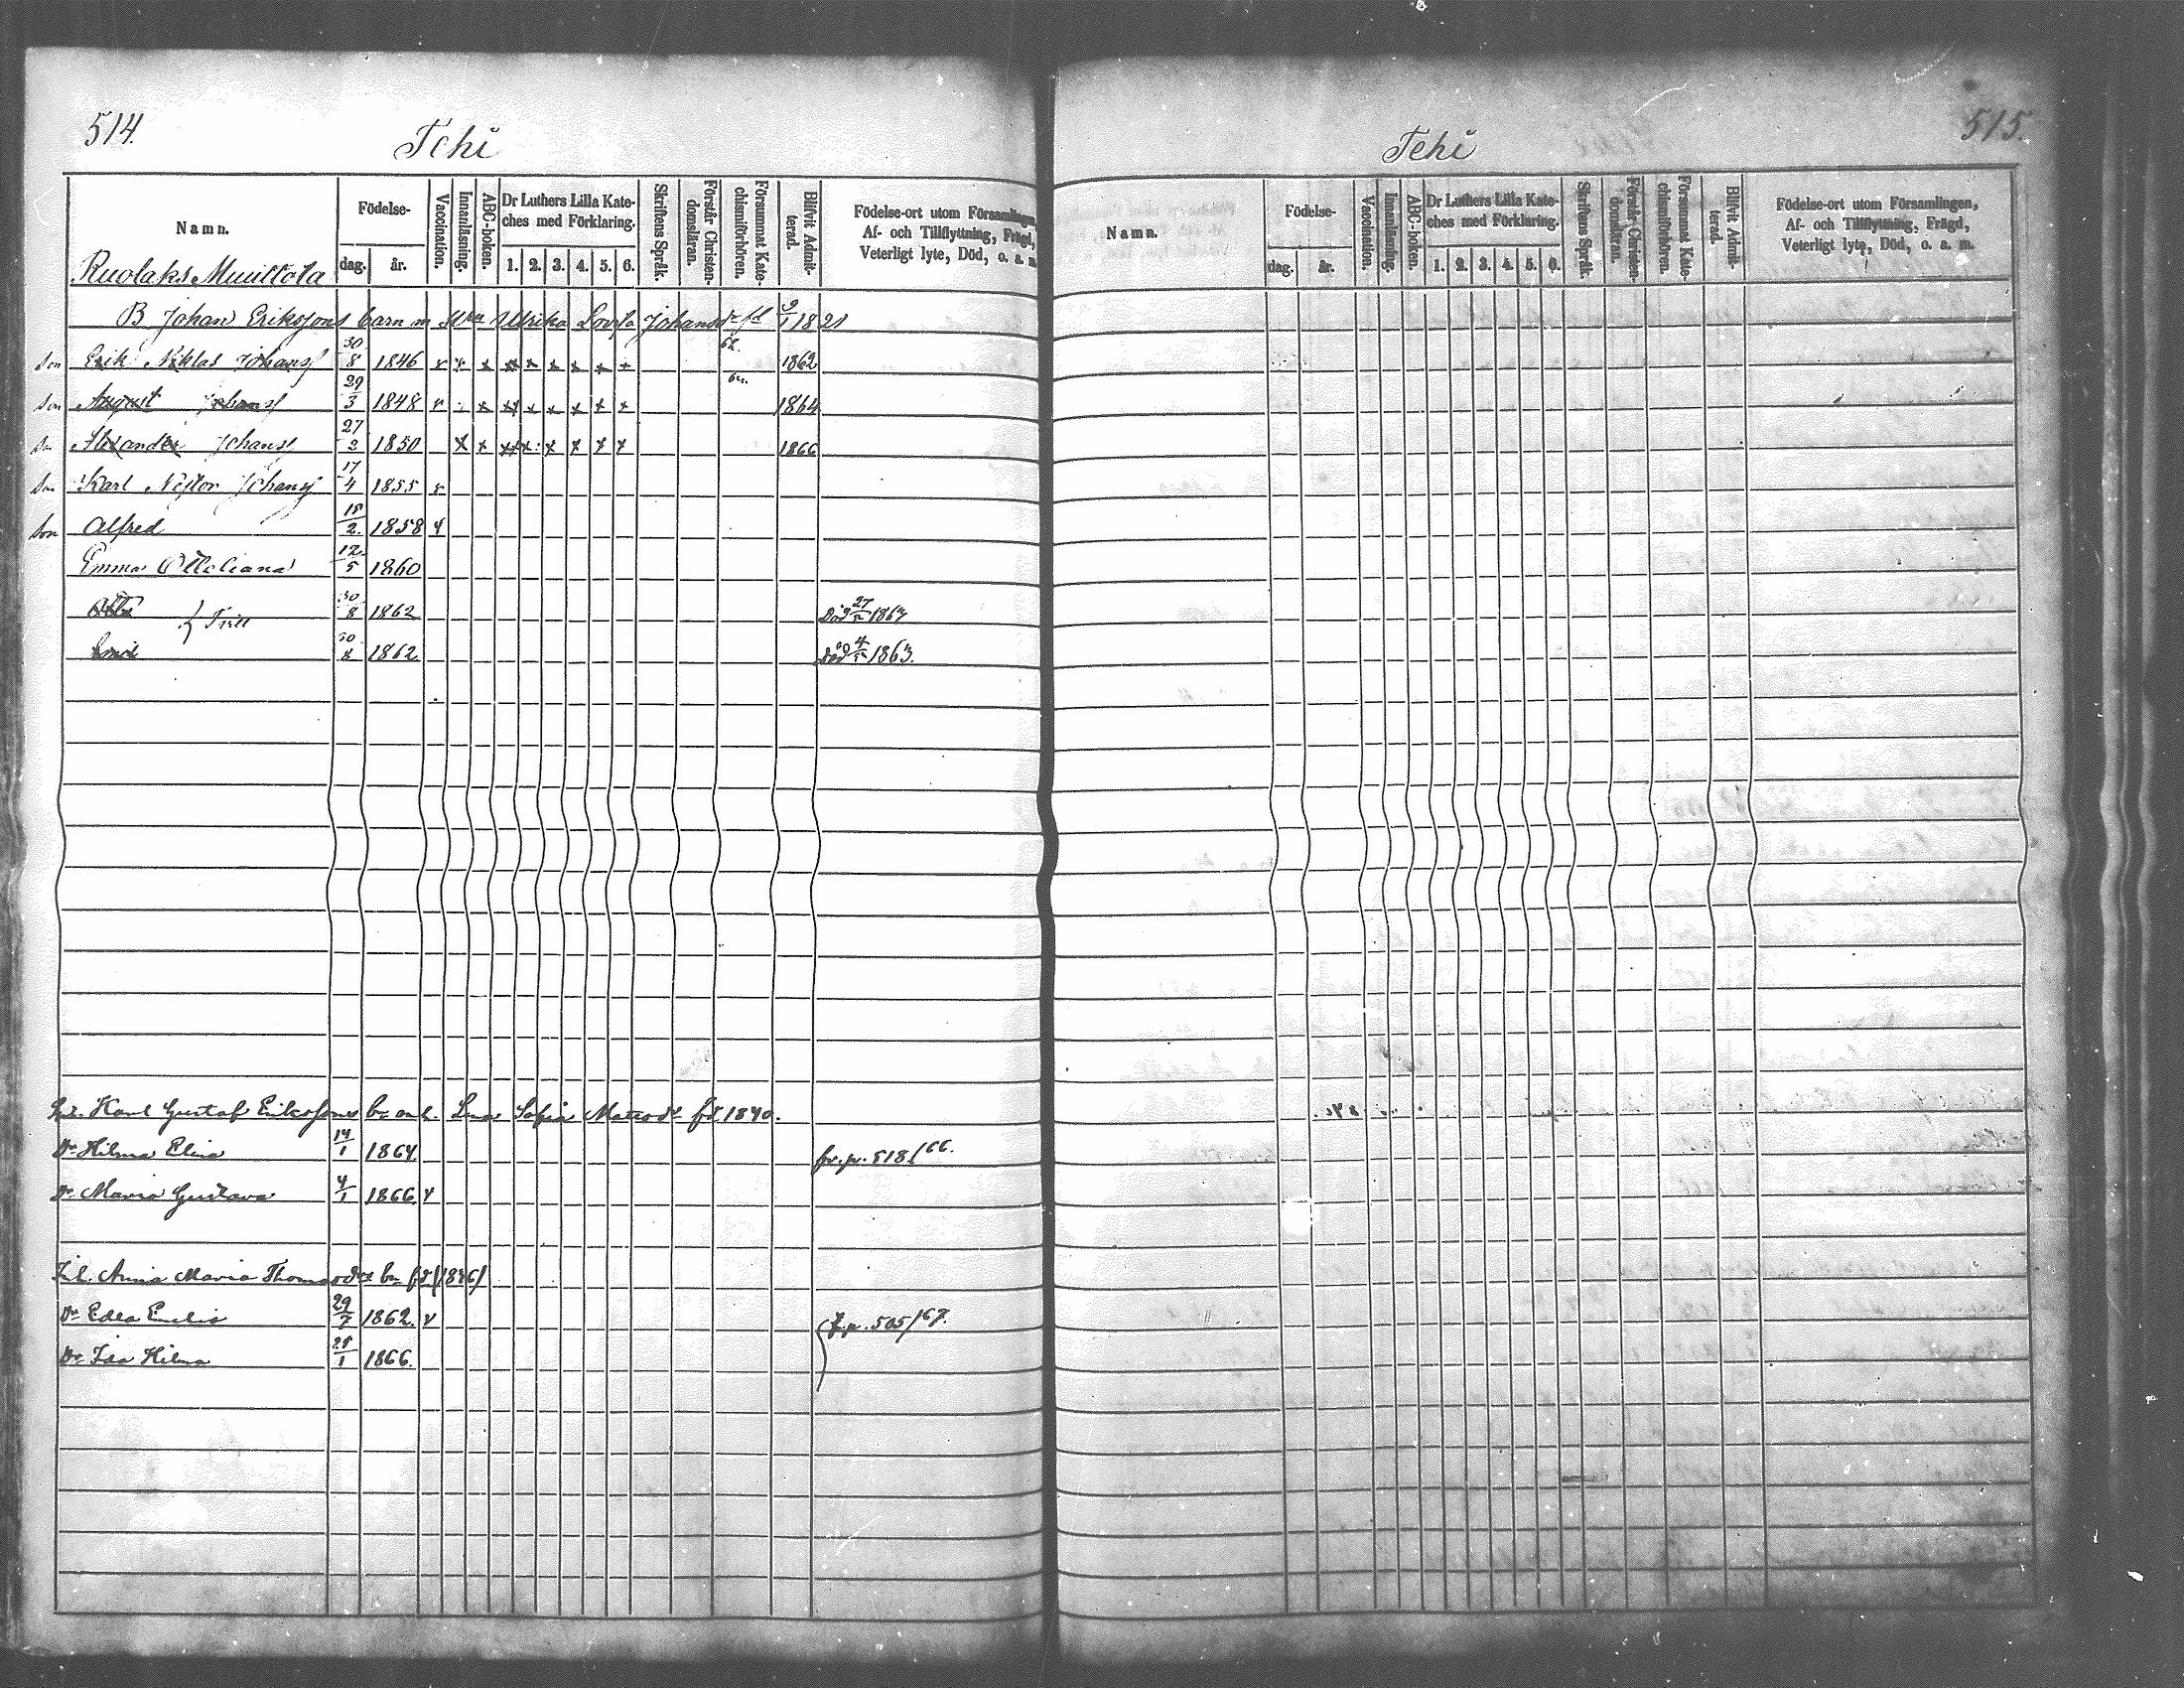 514.
Tehi
Namn.
Födelse-
dag.
år.
Vaccination.
Innanläsning.
ABC-boken.
Dr Luthers Lilla Kate-
ches med Förklaring.
1. 2. 3. 4. 5. 6.
Skriftens Språk.
Förstår Christen-
domsläran.
Försummat Kate-
chismiförhören.
Blifvit Admit-
terad.
Födelse-ort utom Församlingen,
Af- och Tillflyttning, Frägd,
Veterligt lyte, Död, o. a. m.
Ruolaks Muuttola
B Johan Erikssons barn m Ulrika Lovisa Johansdr fd 9/1 1821
Son Erik Niklas Johans 30/8 1846 1862
Son August Johans 29/3 1848 1864
Alexander Johans 27/2 1850 1866
Son Karl Nestor Johans 17/4 1855
Son Alfred 18/2 1858
Emma 12/5 1860
Otto 30/8 1862 Död 27/ 1863
30/8 1862 Död 4/ 1863.
Karl Gustaf Erikssons Lena Sofia Mattsdr fd 1840.
Dr Hilma Elina 14/1 1864 fr. p. 518/66.
Dr Maria Gustava 4/1 1866
Inh. Anna Maria Thomasdrs bn fd (1836)
Dr Edla Emelie 29/7 1862 f. p. 505/67.
Dr Ida Hilma 28/1 1866.
515.
Tehi
Namn.
Födelse-
dag.
år.
Vaccination.
Innanläsning.
ABC-boken.
Dr Luthers Lilla Kate-
ches med Förklaring.
1. 2. 3. 4. 5. 6.
Skriftens Språk.
Förstår Christen-
domsläran.
Försummat Kate-
chismiförhören.
Blifvit Admit-
terad.
Födelse-ort utom Församlingen,
Af- och Tillflyttning, Frägd,
Veterligt lyte, Död, o. a. m.